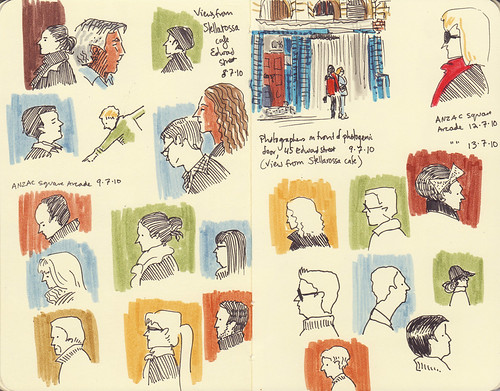 View from
Stellarossa
cafe
Edward
street
8.7.10
ANZAC Square Arcade 9.7.10
Photographers in front of photogenic
door, 45 Edward street 9.7.10
(View from Stellarossa cafe)
ANZAC Square
Arcade 12.7.10
" " 13.7.10